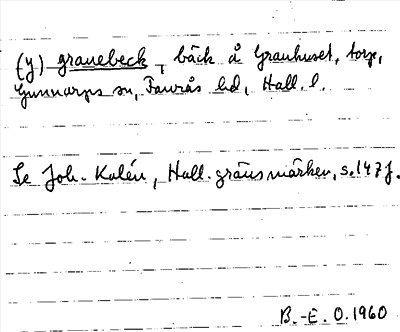 (y) grauebeck, bäck å Grauhuset, torp,
Gunnarps sn, Faurås hd, Hall. l.
Se Joh. Kalén, Hall. gränsmärken, s. 147 f.
B.-E. O. 1960